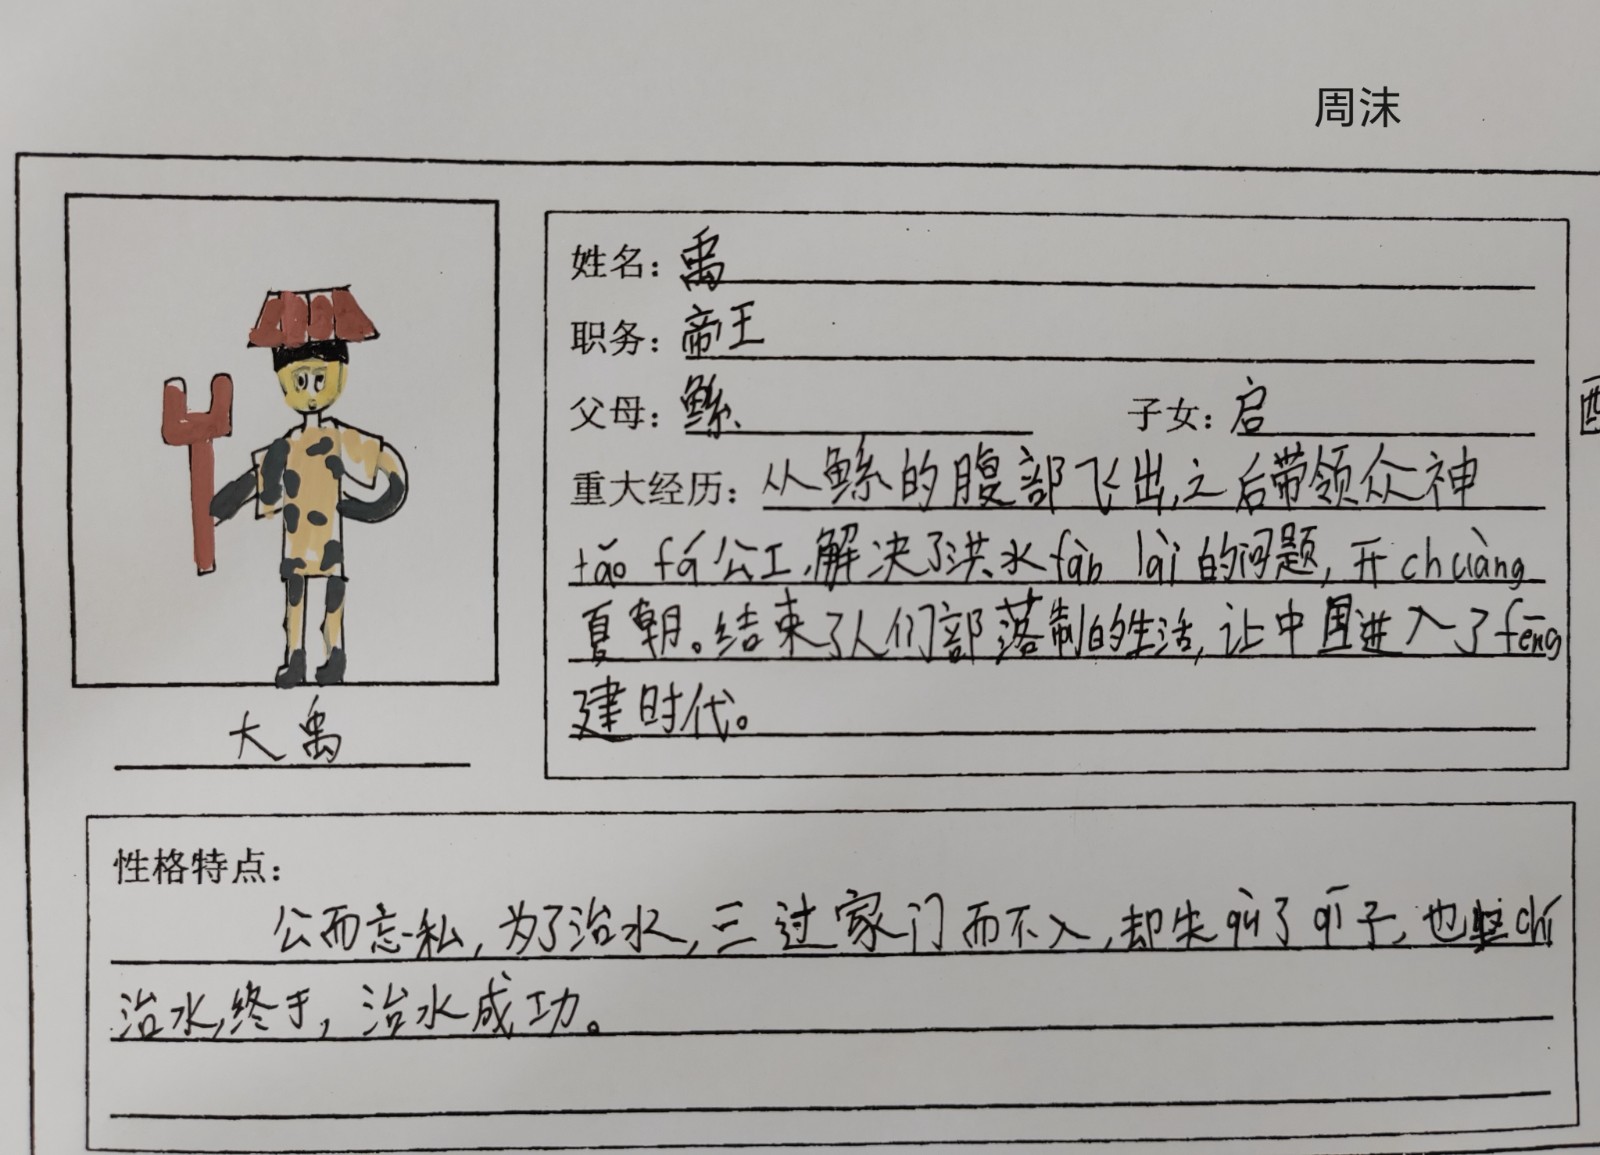 周沫
姓名：禹
职务：帝王
父母：鲧 子女：启
重大经历：从鲧的腹部飞出，之后带领众神
tǎo fá公工，解决了洪水fàn làn的问题，开chuàng
夏朝。结束了人们部落制的生活，让中国进入了fēng
建时代。
大禹
性格特点：
公而忘私，为了治水，三过家门而不入，却失qù了qī子，也坚chí
治水，终于，治水成功。